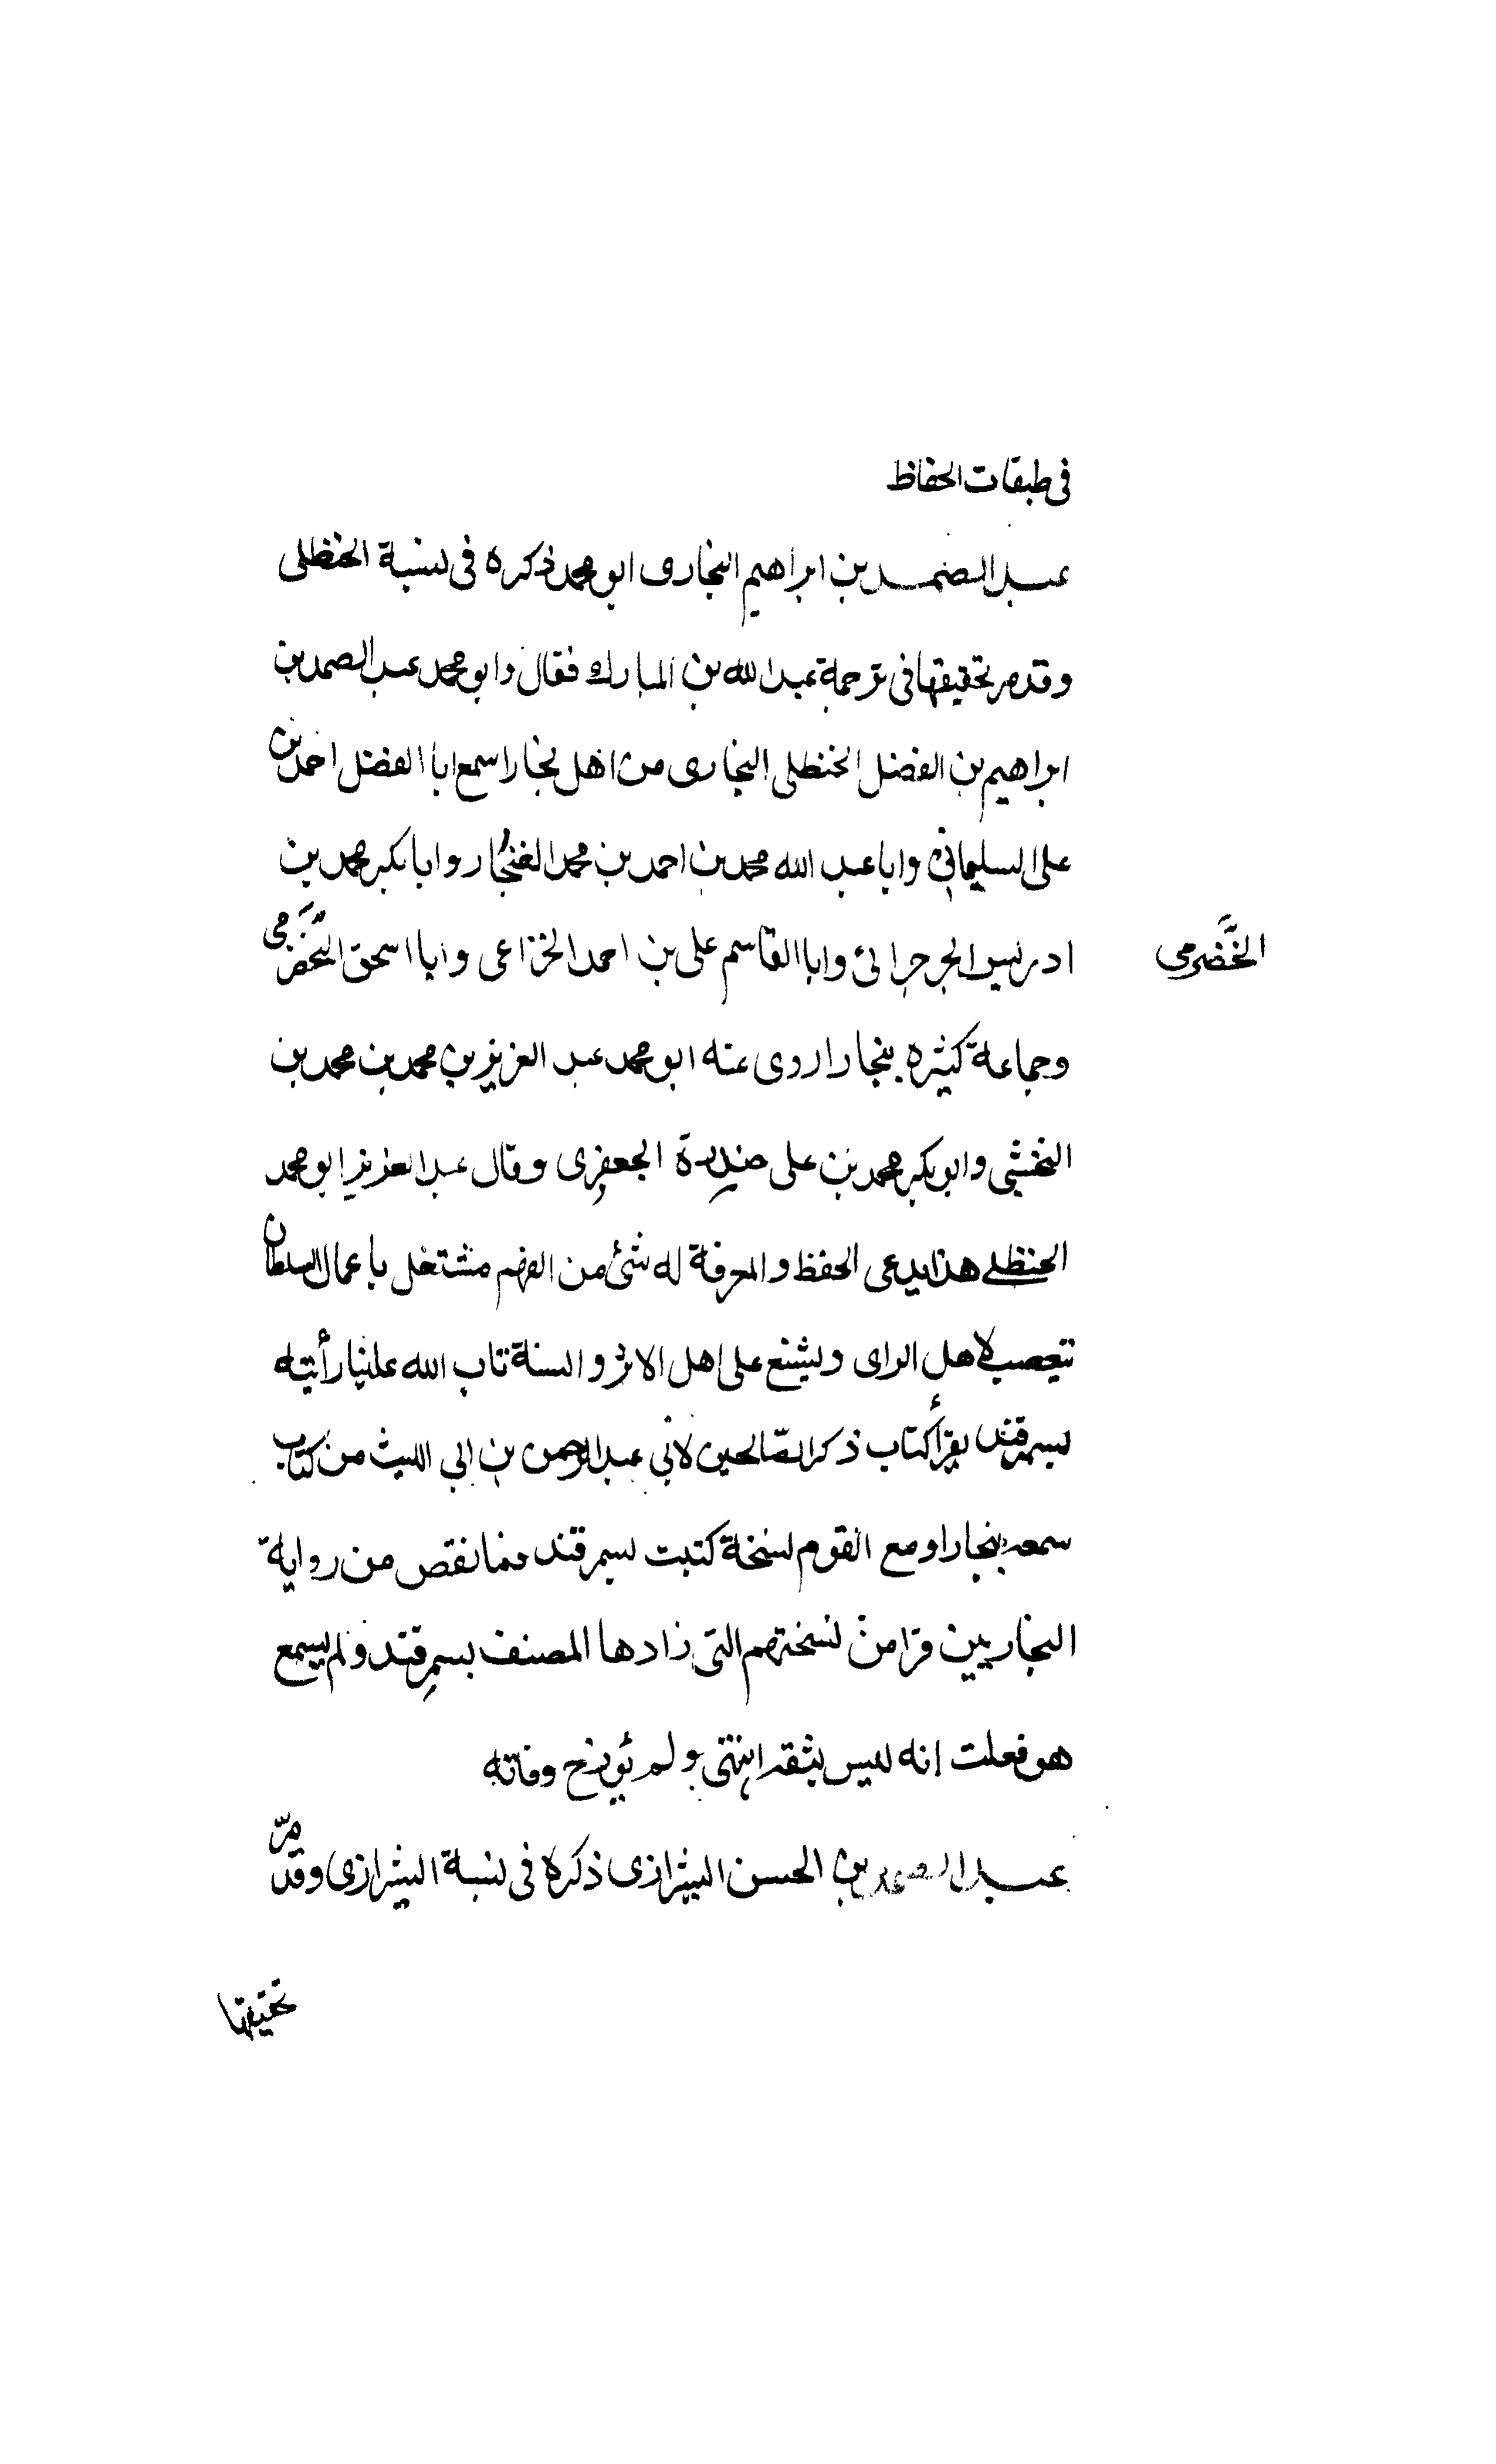 فى طبقات الحفاظ
عبد الصمد بن ابراهيم البخارى ابو محمد ذكره فى نسبة الحنظلى
وقد مر تحقيقها فى ترجمة عبد الله بن المبارك فقال وابو محمد عبد الصمد بن
ابراهيم بن الفضل الحنظلى البخارى من اهل بخارا سمع ابا الفضل احمد بن
على السليمانى وابا عبد الله محمد بن احمد بن محمد الغنجار وابا بكر محمد بن
ادريس الجرجرائى وابا القاسم على بن احمد الخزاعى وابا اسحق
الخضرمى
وجماعة كثيره ببخارا روى عنه ابو محمد عبد العزيز بن محمد بن محمد بن
النخشبى وابو بكر محمد بن على الجعفرى وقال عبد العزيز ابو محمد
الحنظلى هذا يدعى الحفظ والمعرفة له شئ من الفهم مشتغل باعمال السلطان
يتعصب لاهل الراى ويشنع على اهل الاثر والسنة تاب الله علينا رأيته
بسمرقند يقرأ كتاب ذكر الصالحين لابى عبد الرحمن بن ابى الليث من كتاب
سمعه ببخارا ومع القوم نسخة كتبت بسمرقند فما نقص من رواية
البخاريين قرا من نسختهم التى زادها المصنف بسمرقند ولم يسمع
هو فعلت انه ليس بثقه انتهى ولم يؤرخ وفاته
عبد الصمد بن الحسن الشيرازى ذكره فى نسبة الشيرازى وقد مرّ
تحقيقها